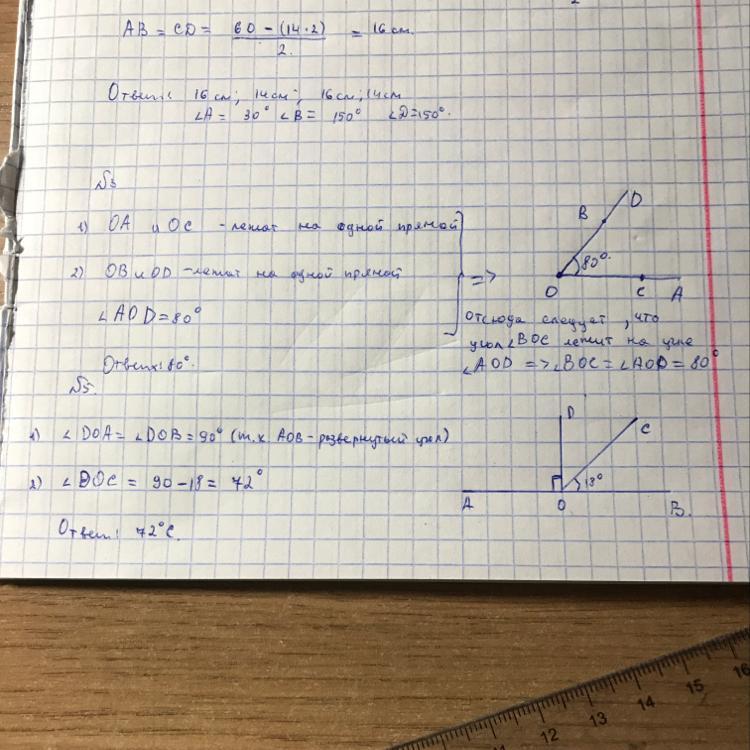 AB = CD = 60 - (14·2) / 2. = 16 см.
Ответ: 16 см; 14 см; 16 см; 14 см
∠A = 30° ∠B = 150° ∠D = 150°.
№3
1) OA и OC - лежат на одной прямой
2) OB и OD - лежат на одной прямой
=>
∠AOD = 80°
Отсюда следует, что
угол ∠BOC лежит на угле
∠AOD => ∠BOC = ∠AOD = 80°
Ответ: 80°.
B D
80°.
O C A
№5.
1) ∠DOA = ∠DOB = 90° (т.к. AOB - развернутый угол)
2) ∠DOC = 90 - 18 = 72°
Ответ: 72°C.
D C
18°
A O B.
11 12 13 14 15 16